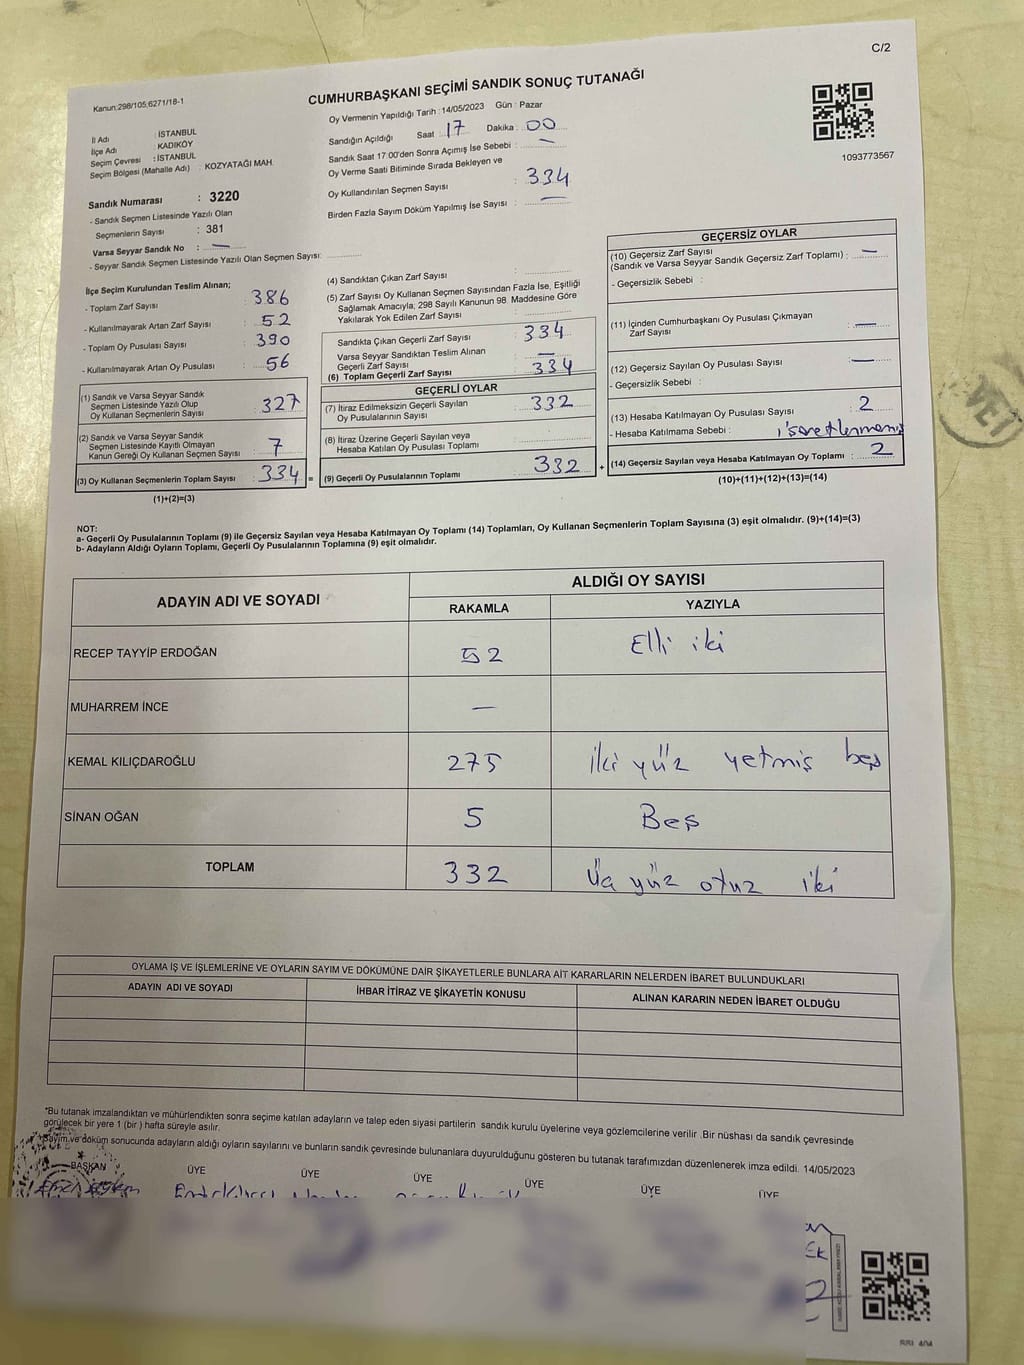 C/2
Kanun:298/105,6271/18-1
CUMHURBAŞKANI SEÇİMİ SANDIK SONUÇ TUTANAĞI
İl Adı : İSTANBUL
İlçe Adı : KADIKÖY
Seçim Çevresi : İSTANBUL
Seçim Bölgesi (Mahalle Adı) : KOZYATAĞI MAH.
Sandık Numarası : 3220
- Sandık Seçmen Listesinde Yazılı Olan
Seçmenlerin Sayısı : 381
Varsa Seyyar Sandık No : —
- Seyyar Sandık Seçmen Listesinde Yazılı Olan Seçmen Sayısı:
Oy Vermenin Yapıldığı Tarih : 14/05/2023 Gün : Pazar
Sandığın Açıldığı Saat : 17 Dakika : 00
Sandık Saat 17.00'den Sonra Açımış İse Sebebi : —
Oy Verme Saati Bitiminde Sırada Bekleyen ve
Oy Kullandırılan Seçmen Sayısı : 334
Birden Fazla Sayım Döküm Yapılmış İse Sayısı : —
1093773567
İlçe Seçim Kurulundan Teslim Alınan;
- Toplam Zarf Sayısı : 386
- Kullanılmayarak Artan Zarf Sayısı : 52
- Toplam Oy Pusulası Sayısı : 390
- Kullanılmayarak Artan Oy Pusulası : 56
(1) Sandık ve Varsa Seyyar Sandık
Seçmen Listesinde Yazılı Olup
Oy Kullanan Seçmenlerin Sayısı : 327
(2) Sandık ve Varsa Seyyar Sandık
Seçmen Listesinde Kayıtlı Olmayan
Kanun Gereği Oy Kullanan Seçmen Sayısı : 7
(3) Oy Kullanan Seçmenlerin Toplam Sayısı : 334 =
(1)+(2)=(3)
(4) Sandıktan Çıkan Zarf Sayısı :
(5) Zarf Sayısı Oy Kullanan Seçmen Sayısından Fazla İse, Eşitliği
Sağlamak Amacıyla; 298 Sayılı Kanunun 98. Maddesine Göre
Yakılarak Yok Edilen Zarf Sayısı :
Sandıkta Çıkan Geçerli Zarf Sayısı : 334
Varsa Seyyar Sandıktan Teslim Alınan
Geçerli Zarf Sayısı : —
(6) Toplam Geçerli Zarf Sayısı : 334
GEÇERLİ OYLAR
(7) İtiraz Edilmeksizin Geçerli Sayılan
Oy Pusulalarının Sayısı : 332
(8) İtiraz Üzerine Geçerli Sayılan veya
Hesaba Katılan Oy Pusulası Toplamı :
(9) Geçerli Oy Pusulalarının Toplamı : 332 +
GEÇERSİZ OYLAR
(10) Geçersiz Zarf Sayısı
(Sandık ve Varsa Seyyar Sandık Geçersiz Zarf Toplamı) : —
- Geçersizlik Sebebi :
(11) İçinden Cumhurbaşkanı Oy Pusulası Çıkmayan
Zarf Sayısı : —
(12) Geçersiz Sayılan Oy Pusulası Sayısı : —
- Geçersizlik Sebebi :
(13) Hesaba Katılmayan Oy Pusulası Sayısı : 2
- Hesaba Katılmama Sebebi : işaretlenmemiş
(14) Geçersiz Sayılan veya Hesaba Katılmayan Oy Toplamı : 2
(10)+(11)+(12)+(13)=(14)
VET
NOT:
a- Geçerli Oy Pusulalarının Toplamı (9) ile Geçersiz Sayılan veya Hesaba Katılmayan Oy Toplamı (14) Toplamları, Oy Kullanan Seçmenlerin Toplam Sayısına (3) eşit olmalıdır. (9)+(14)=(3)
b- Adayların Aldığı Oyların Toplamı, Geçerli Oy Pusulalarının Toplamına (9) eşit olmalıdır.
ADAYIN ADI VE SOYADI ALDIĞI OY SAYISI
RAKAMLA YAZIYLA
RECEP TAYYİP ERDOĞAN 52 Elli iki
MUHARREM İNCE —
KEMAL KILIÇDAROĞLU 275 iki yüz yetmiş beş
SİNAN OĞAN 5 Beş
TOPLAM 332 Üç yüz otuz iki
OYLAMA İŞ VE İŞLEMLERİNE VE OYLARIN SAYIM VE DÖKÜMÜNE DAİR ŞİKAYETLERLE BUNLARA AİT KARARLARIN NELERDEN İBARET BULUNDUKLARI
ADAYIN ADI VE SOYADI İHBAR İTİRAZ VE ŞİKAYETİN KONUSU ALINAN KARARIN NEDEN İBARET OLDUĞU
*Bu tutanak imzalandıktan ve mühürlendikten sonra seçime katılan adayların ve talep eden siyasi partilerin sandık kurulu üyelerine veya gözlemcilerine verilir .Bir nüshası da sandık çevresinde
görülecek bir yere 1 (bir ) hafta süreyle asılır.
*Sayım ve döküm sonucunda adayların aldığı oyların sayılarını ve bunların sandık çevresinde bulunanlara duyurulduğunu gösteren bu tutanak tarafımızdan düzenlenerek imza edildi. 14/05/2023
BAŞKAN ÜYE ÜYE ÜYE ÜYE ÜYE ÜYE